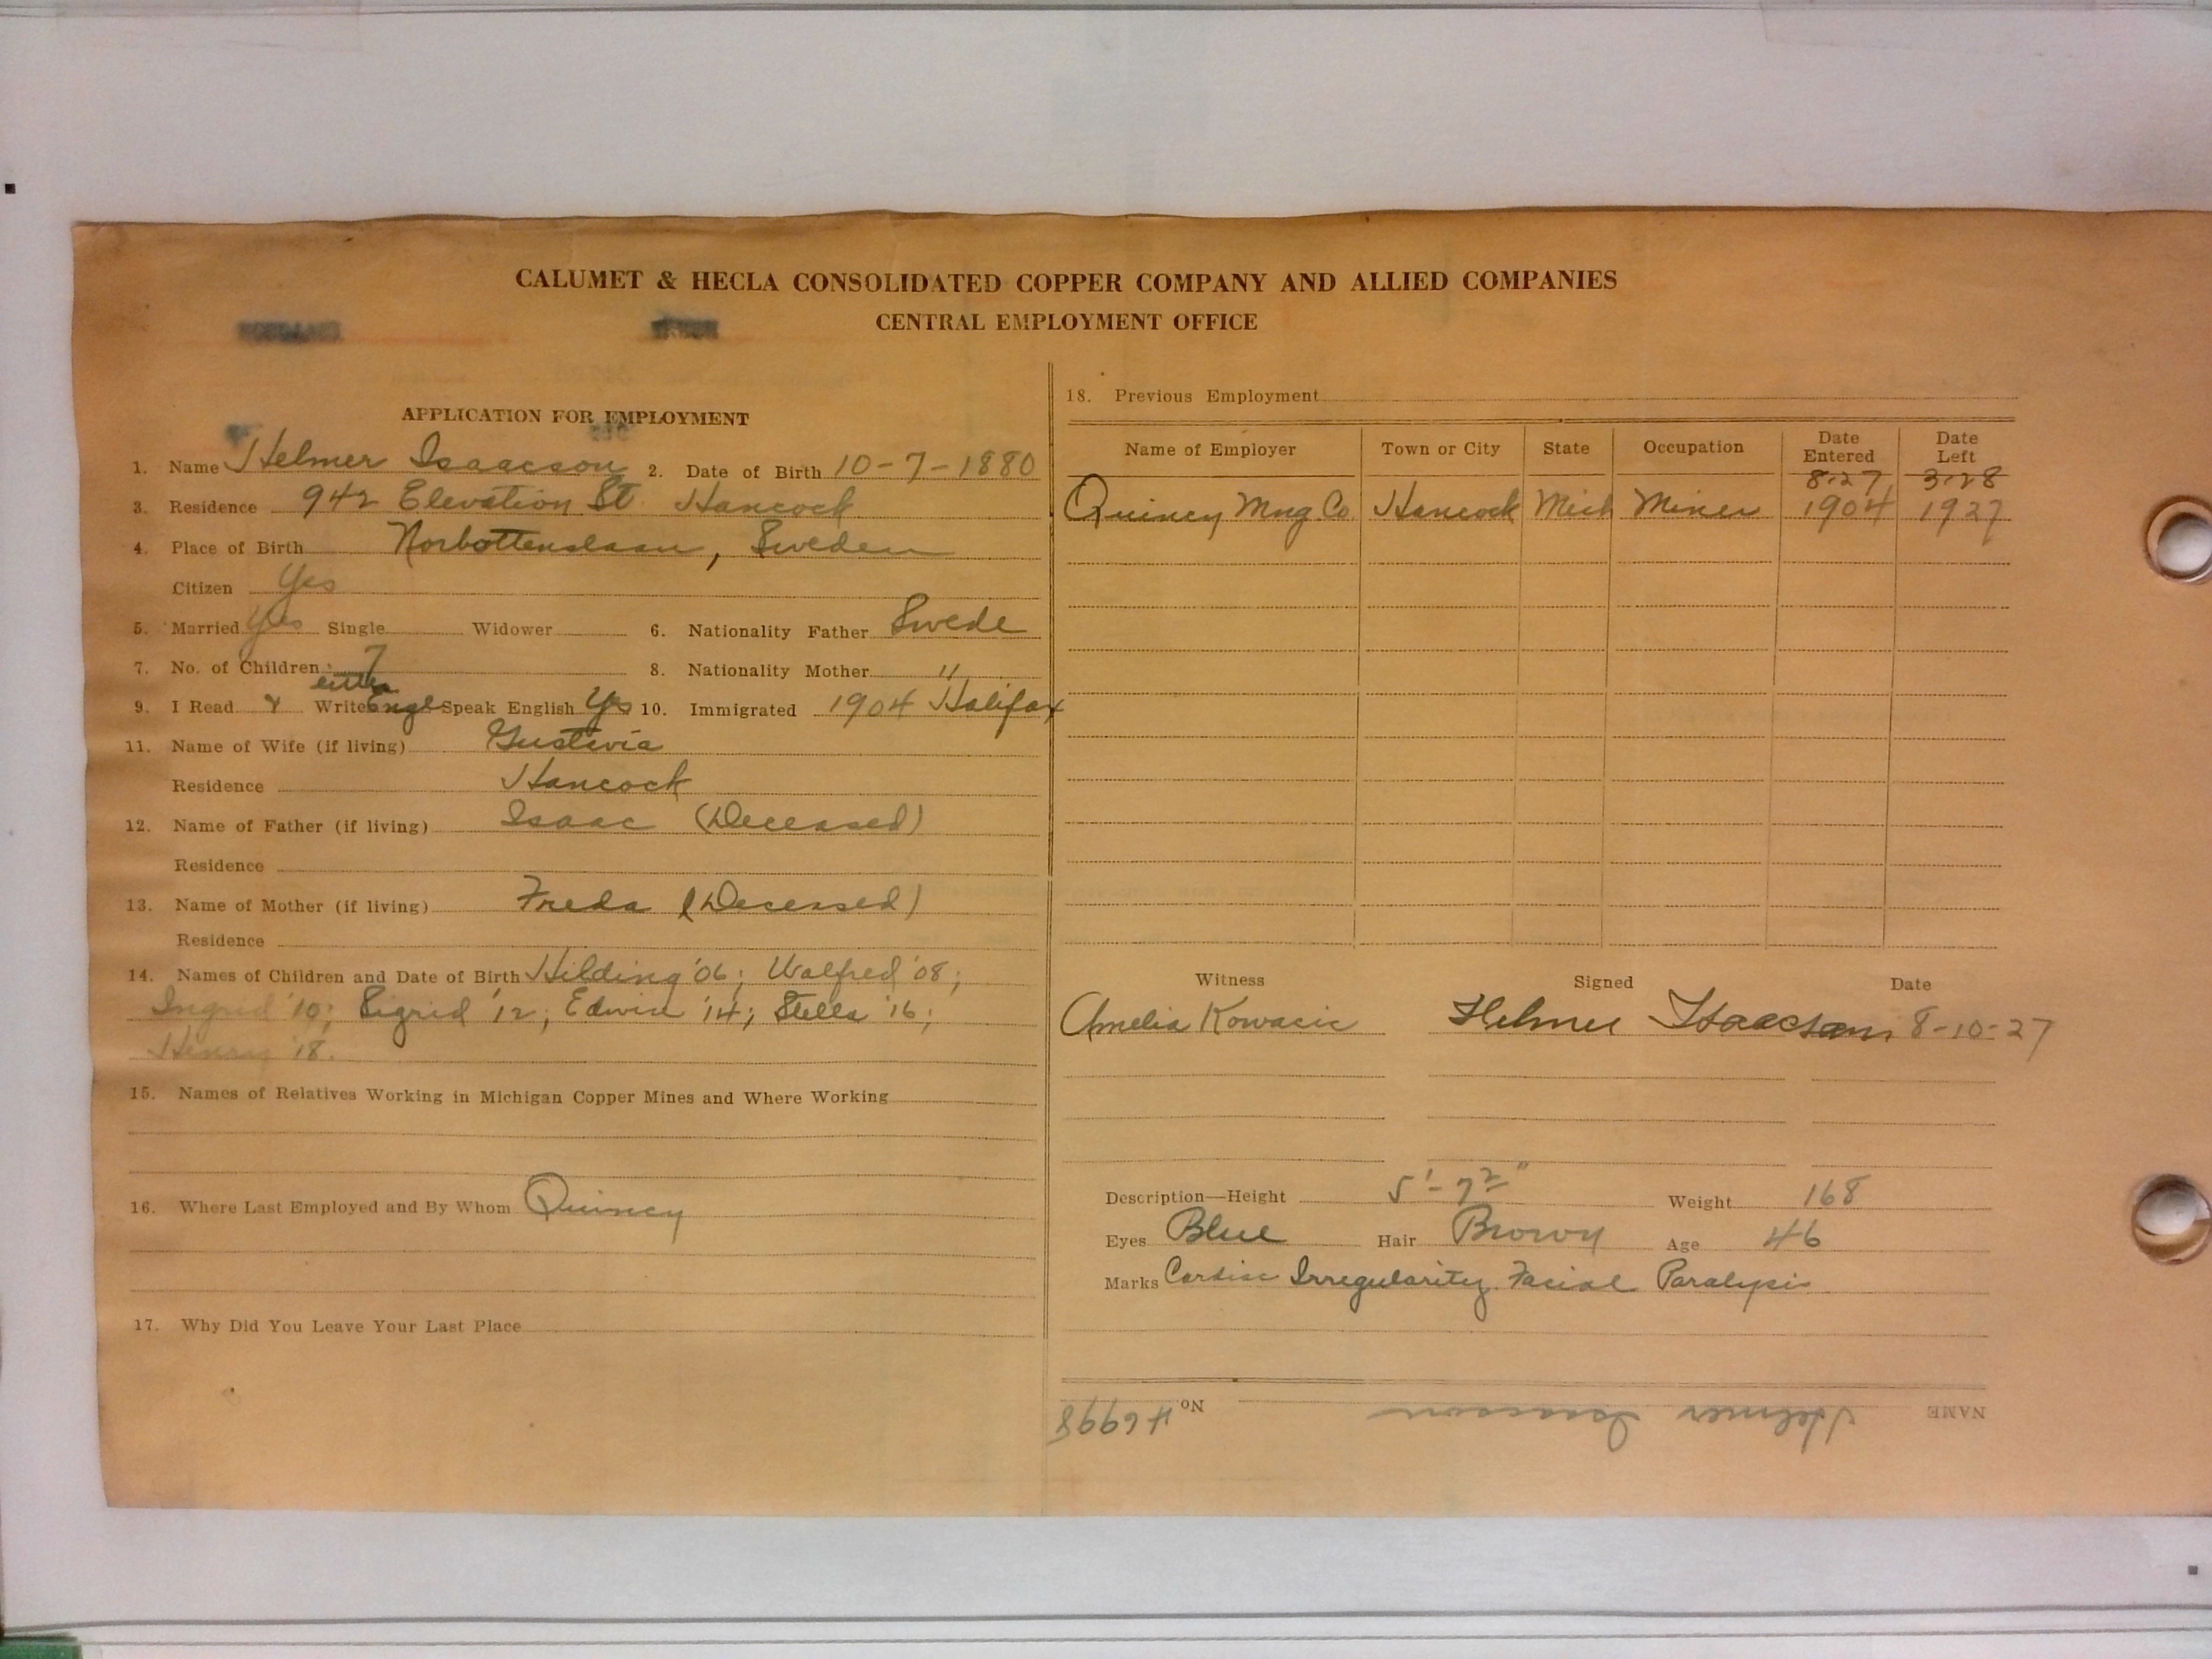 CALUMET & HECLA CONSOLIDATED COPPER COMPANY AND ALLIED COMPANIES
CENTRAL EMPLOYMENT OFFICE
APPLICATION FOR EMPLOYMENT
1. Name Helmer Isaacson 2. Date of Birth 10-7-1880
3. Residence 942 Elevation St Hancock
4. Place of Birth Norbottenslaan, Sweden
Citizen Yes
5. Married Yes Single Widower 6. Nationality Father Swede
7. No. of Children 7 8. Nationality Mother "
9. I Read & Write Engl Speak English Yes 10. Immigrated 1904 Halifax
11. Name of Wife (if living) Gustivia
Residence Hancock
12. Name of Father (if living) Isaac (Deceased)
Residence
13. Name of Mother (if living) Freda (Deceased)
Residence
14. Names of Children and Date of Birth Hilding '06; Walfred '08;
Ingrid '10; Sigrid '12; Edwin '14; Stella '16;
Henry '18.
15. Names of Relatives Working in Michigan Copper Mines and Where Working
16. Where Last Employed and By Whom Quincy
17. Why Did You Leave Your Last Place
18. Previous Employment
Name of Employer Town or City State Occupation Date Entered Date Left
8-27 3-28
Quincy Mng Co. Hancock Mich Miner 1904 1927
Witness Signed Date
Amelia Kowacic Helmer Isaacson 8-10-27
Description—Height 5'-7 2" Weight 168
Eyes Blue Hair Brown Age 46
Marks Cardiac Irregularity. Facial Paralysis
NAME Helmer Isaacson No. H6998